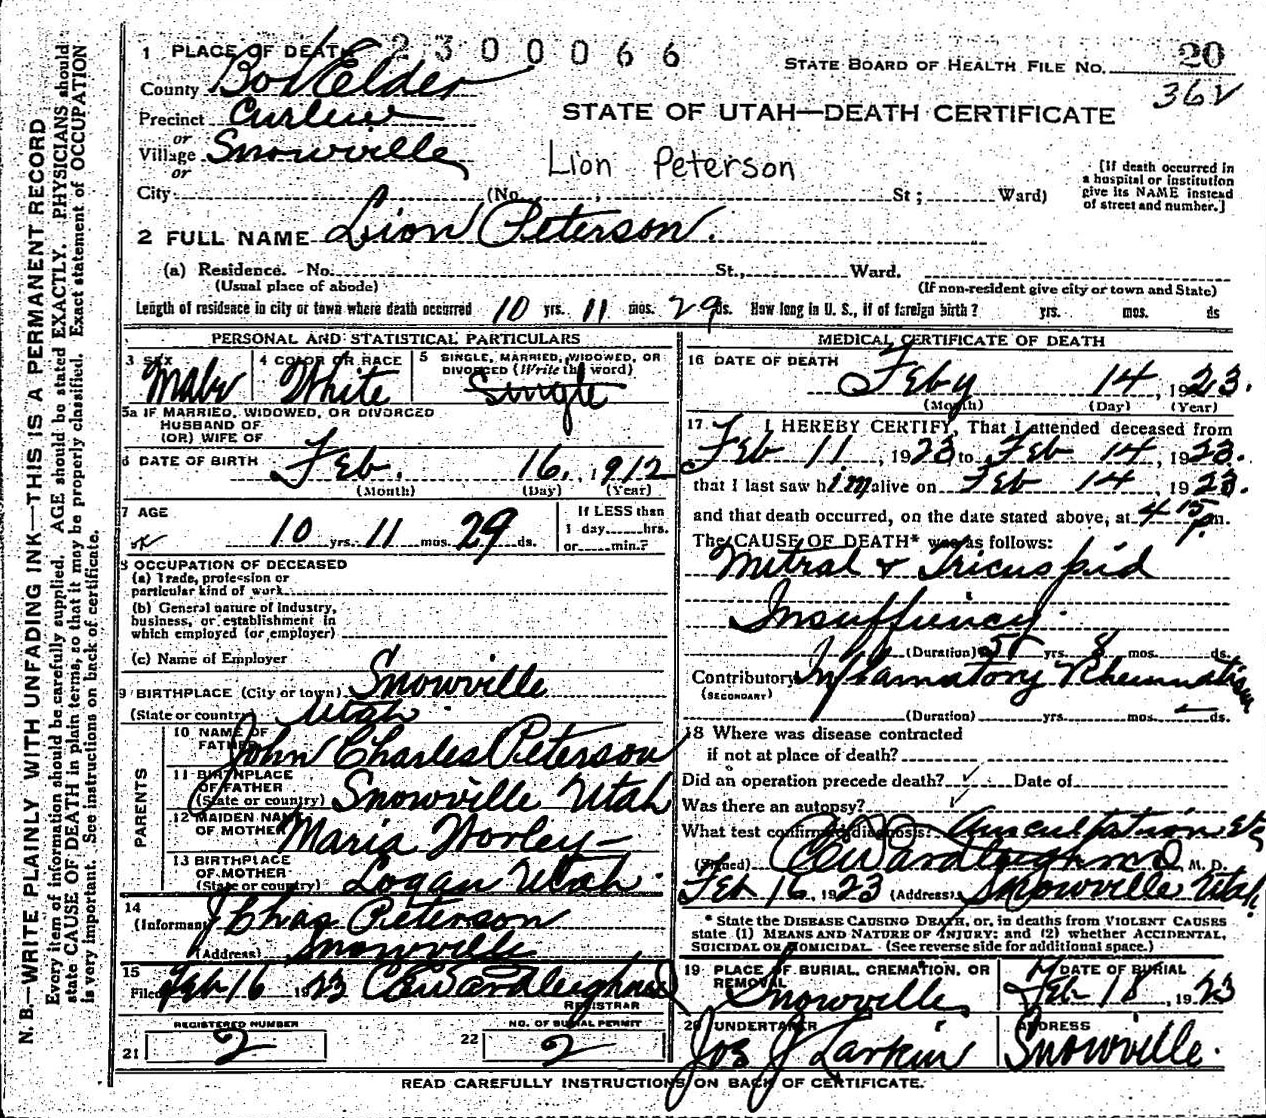 1 PLACE OF DEATH 2300066
STATE BOARD OF HEALTH FILE No. 20
County Box Elder
36 V
Precinct Curlew
STATE OF UTAH—DEATH CERTIFICATE
or
Village Snowville
Lion Peterson
or
City (No. St; Ward)
[If death occurred in
a hospital or institution
give its NAME instead
of street and number.]
2 FULL NAME Lion Peterson.
(a) Residence. No. St., Ward.
(Usual place of abode) (If non-resident give city or town and State)
Length of residence in city or town where death occurred 10 yrs. 11 mos. 29 ds. How long in U. S., if of foreign birth? yrs. mos. ds
PERSONAL AND STATISTICAL PARTICULARS
3 SEX
4 COLOR OR RACE White
5 SINGLE, MARRIED, WIDOWED, OR
DIVORCED (Write the word)
Single
5a IF MARRIED, WIDOWED, OR DIVORCED
HUSBAND OF
(OR) WIFE OF
6 DATE OF BIRTH Feb. 16, 1912
(Month) (Day) (Year)
7 AGE
10 yrs. 11 mos. 29 ds.
If LESS than
1 day......hrs.
or......min.?
8 OCCUPATION OF DECEASED
(a) Trade, profession or
particular kind of work
(b) General nature of Industry,
business, or establishment in
which employed (or employer)
(c) Name of Employer
9 BIRTHPLACE (City or town) Snowville
(State or country) Utah.
PARENTS
10 NAME OF
FATHER John Charles Peterson
11 BIRTHPLACE
OF FATHER
(State or country) Snowville Utah
12 MAIDEN NAME
OF MOTHER Maria Worley
13 BIRTHPLACE
OF MOTHER
(State or country) Logan Utah.
14
(Informant) J Chas Peterson
(Address) Snowville
15
Filed Feb 16 1923
REGISTRAR
REGISTERED NUMBER
21 2
NO. OF BURIAL PERMIT
22 2
MEDICAL CERTIFICATE OF DEATH
16 DATE OF DEATH
Feby 14, 1923.
(Month) (Day) (Year)
17 I HEREBY CERTIFY, That I attended deceased from
Feb 11, 1923 to Feb 14, 1923.
that I last saw him alive on Feb 14, 1923.
and that death occurred, on the date stated above, at 4 15 P. m.
The CAUSE OF DEATH* was as follows:
Mitral & Tricuspid
Insuffiency.
(Duration) yrs. 8 mos. ds.
Contributory Inflamatory Rheumatism
(SECONDARY)
(Duration) yrs. mos. ds.
18 Where was disease contracted
if not at place of death?
Did an operation precede death? ✓ Date of
Was there an autopsy? ✓
What test confirmed diagnosis? Auscultation etc
(Signed) M. D.
Feb 16, 1923 (Address) Snowville Utah.
* State the DISEASE CAUSING DEATH, or, in deaths from VIOLENT CAUSES
state (1) MEANS AND NATURE OF INJURY; and (2) whether ACCIDENTAL,
SUICIDAL OR HOMICIDAL. (See reverse side for additional space.)
19 PLACE OF BURIAL, CREMATION, OR
REMOVAL
Snowville
DATE OF BURIAL
Feb 18, 1923
20 UNDERTAKER
Jos J Larkin
ADDRESS
Snowville.
READ CAREFULLY INSTRUCTIONS ON BACK OF CERTIFICATE.
N. B.—WRITE PLAINLY WITH UNFADING INK—THIS IS A PERMANENT RECORD
Every item of information should be carefully supplied. AGE should be stated EXACTLY. PHYSICIANS should
state CAUSE OF DEATH in plain terms, so that it may be properly classified. Exact statement of OCCUPATION
is very important. See instructions on back of certificate.